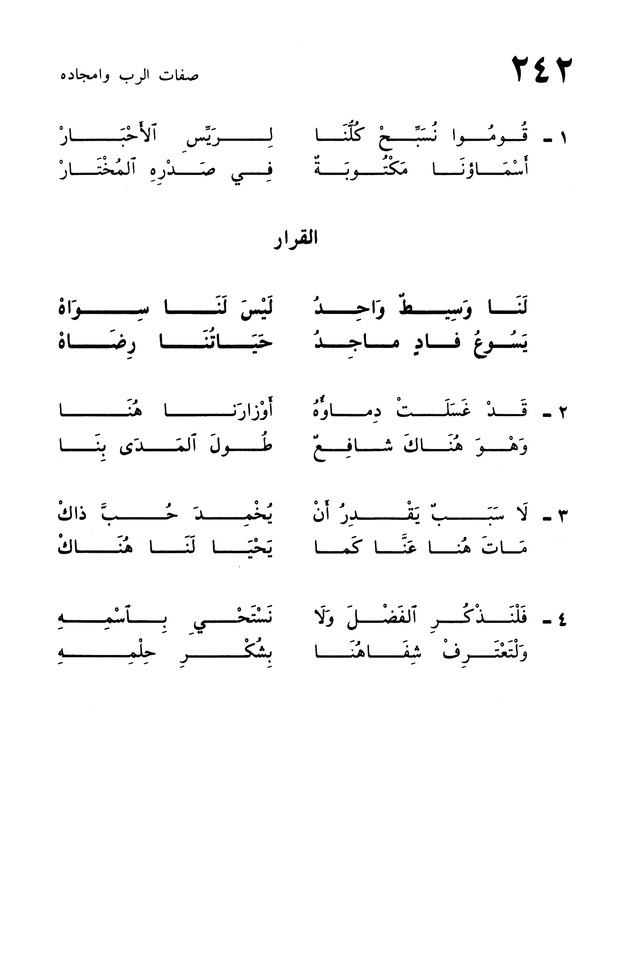 ٢٤٢ صفات الرب وامجاده
١ - قُومُوا نُسَبِّحْ كُلُّنَا لِرَيِّسِ ٱلأَحْبَارْ
أَسْمَاؤنَا مَكْتُوبَةٌ فِي صَدْرِهِ ٱلمُخْتَارْ
القرار
لَنَا وَسِيطٌ وَاحِدُ لَيْسَ لَنَا سِوَاهْ
يَسُوعُ فَادٍ ماجِدُ حَيَاتُنَا رِضَاهْ
٢ - قَدْ غَسَلَتْ دِماؤُهُ أَوْزارَنا هُنَا
وَهْوَ هُنَاكَ شافِعٌ طُولَ ٱلمَدَى بِنَا
٣ - لَا سَبَبٌ يَقْدِرُ أَنْ يُخْمِدَ حُبَّ ذاكْ
مَاتَ هُنا عَنَّا كَما يَحْيَا لَنَا هُنَاكْ
٤ - فَلْنَذْكُرِ ٱلفَضْلَ وَلَا نَسْتَحْيِ بِٱسْمِهِ
وَلْتَعْتَرِفْ شِفَاهُنَا بِشُكْرِ حِلْمِهِ